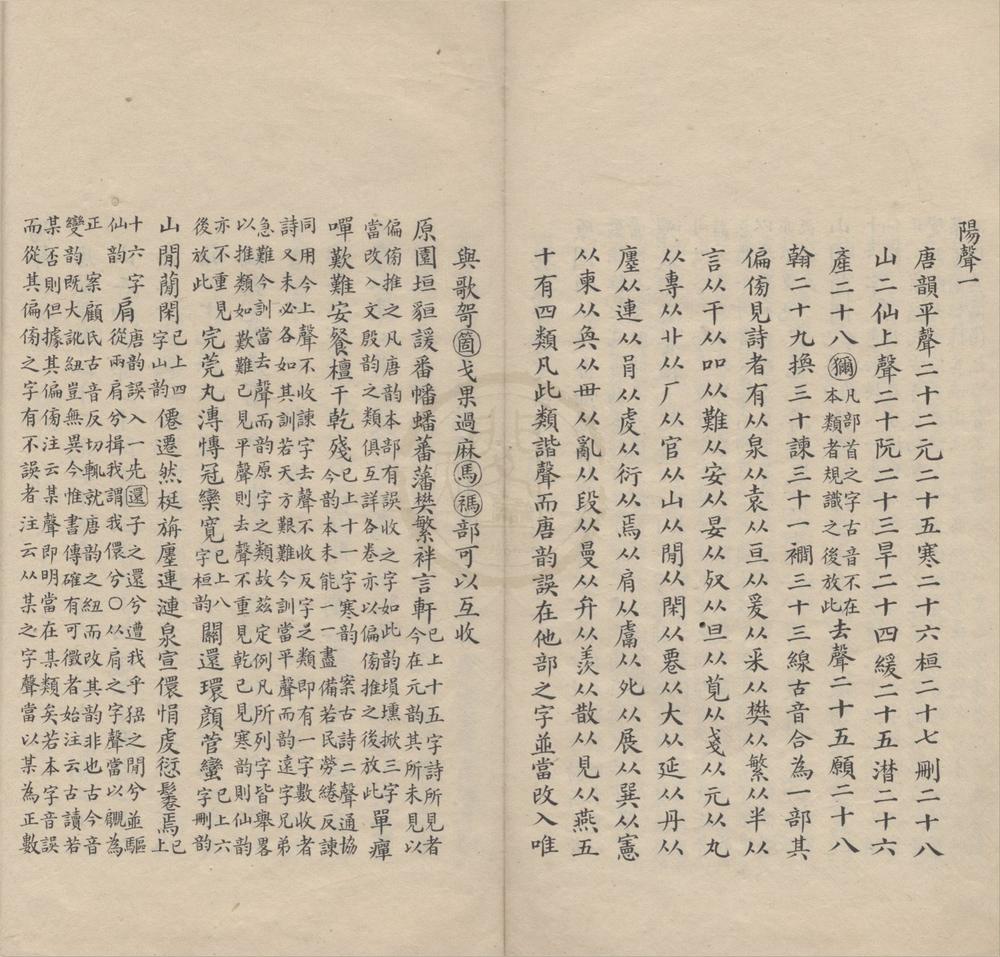 陽聲一
唐韻平聲二十二元二十五寒二十六桓二十七刪二十八
山二仙上聲二十阮二十三旱二十四緩二十五潸二十六
產二十八獮凡部首之字古音不在
本類者規識之後放此去聲二十五願二十八
翰二十九換三十諫三十一襇三十三線古音合為一部其
偏㑄見詩者有从泉从袁从亘从爰从釆从樊从繁从半从
言从干从吅从難从安从晏从奴从旦从莧从戔从元从丸
从專从丱从厂从官从山从閒从閑从䙴从大从延从丹从
廛从連从肙从虔从衍从焉从肩从鬳从㲋从展从巽从憲
从柬从奐从毌从亂从段从曼从弁从羨从散从見从燕五
十有四類凡此類諧聲而唐韻誤在他部之字並當改入唯
與歌哿箇戈果過麻馬禡部可以互收
原園垣貆諼番幡蟠蕃藩樊繁袢言軒已上十五字詩所見者
今在元韻其所未見以
偏㑄推之凡唐韻本部有誤收之字如此韻塤壎掀三字
當改入文殷韻之類俱互詳各卷亦以偏㑄推之後放此單癉
嘽歎難安餐檀干乾殘已上十一字寒韻案古詩二聲通協
今韻本未能一一盡備若民勞綣反諫
同用今上聲不收諫字去聲不收反字之類即有一字數收者
詩又未必各如其訓若天方艱難今訓當平聲而韻遠字兄弟
急難今訓當去聲而韻原字之類故茲定例凡所列字皆舉畧
以推類如歎難已見平聲則去聲不重見乾已見寒韻則仙韻
亦不重見
後放此完莞丸漙慱冠欒寬已上八
字桓韻關還環顏菅蠻已上六
字刪韻
山閒蕑閑已上四
字山韻僊遷然梴旃廛連漣泉宣儇悁虔愆鬈焉已
上
十六字
仙韻肩唐韻誤入一先還子之還兮遭我乎猺之閒兮並驅
從兩肩兮揖我謂我儇兮〇从肩之字聲當以覵為
正案顧氏古音反切輒就唐韻之紐而改其韻非也古今音
變韻既大訛紐豈無異今惟書傳確有可徵者始注云古讀若
某否則但據其偏㑄注云某聲即明當在某類矣若本字音誤
而從其偏㑄之字有不誤者注云从某之字聲當以某為正數